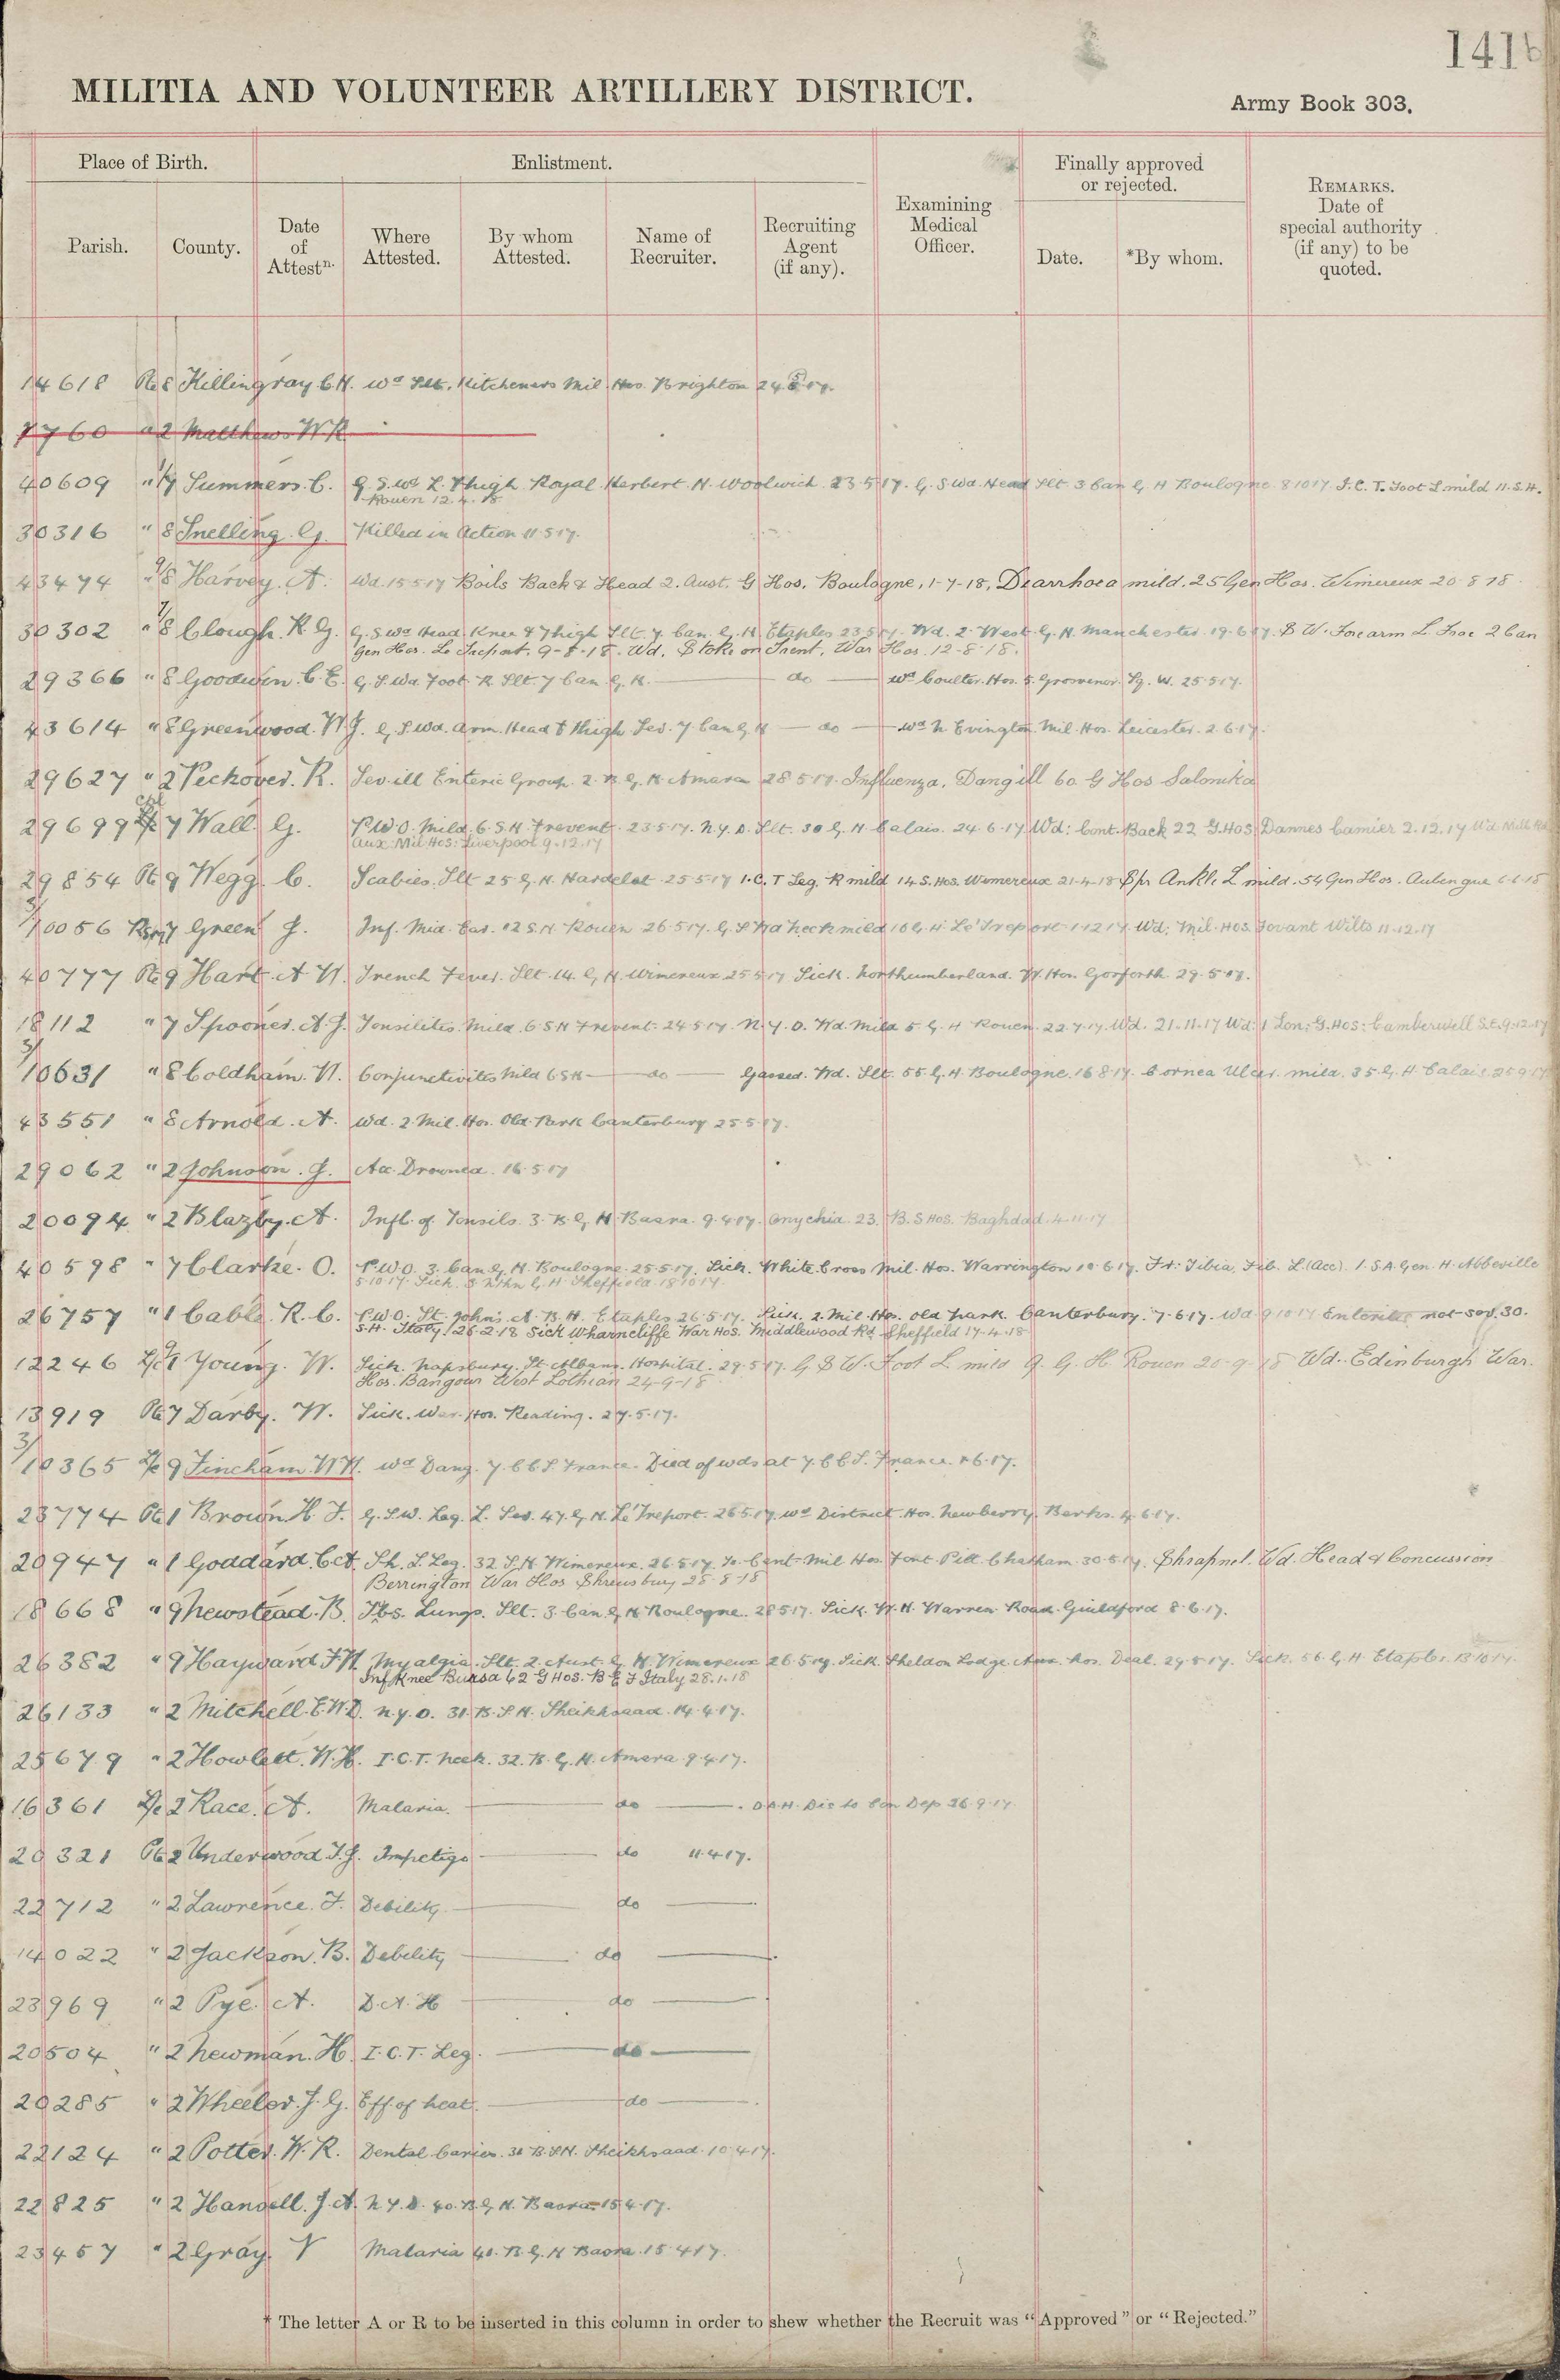 141b
MILITIA AND VOLUNTEER ARTILLERY DISTRICT.
Army Book 303.
Place of Birth.
Enlistment.
Finally approved
or rejected.
REMARKS.
Date of
special authority
(if any) to be
quoted.
Parish.
County.
Date
of
Attestn.
Where
Attested.
By whom
Attested.
Name of
Recruiter.
Recruiting
Agent
(if any).
Examining
Medical
Officer.
Date.
*By whom.
14618 Pte 8 Killingray C.H. Wd Slt. Kitcheners Mil. Hos. Brighton 24.5.17.
7760 " 2 Matthews W R
40609 " 1/7 Summers. C. G.S.Wd L. Thigh Royal Herbert H. Woolwich 23.5.17. G.S.Wd. Head Slt. 3 Can G H Boulogne 8.10.17. I.C.T. Foot L mild 11.S.H.
Rouen 12.4.18
30316 " 8 Snelling. G. Killed in Action 11.5.17.
43474 " 8 Harvey. A. Wd. 15.5.17 Boils Back & Head 2. Aust. G Hos, Boulogne, 1-7-18, Diarrhoea mild. 25 Gen Hos. Wimereux 20.8.18.
30302 " 8 Clough. R. G. G.S.Wd Head Knee & Thigh Slt. 7. Can. G.H. Etaples 23.5.17. Wd. 2. West G.H. Manchester. 19.6.17. S W. Forearm L. Frac 2 Can
Gen Hos. Le Treport. 9-8-18. Wd, Stoke on Trent, War Hos. 12-8-18.
29366 " 8 Goodwin. C. E. G.S.Wd. Foot. R. Slt. 7 Can. G.H. — do — Wd Coulter. Hos. 5. Grosvenor. Sq. W. 25.5.17.
43614 " 8 Greenwood. W. J. G.S.Wd. Arm. Head & Thigh Sev. 7. Can G H — do — Wd N Evington Mil. Hos. Leicester. 2.6.17.
29627 " 2 Peckover. R. Sev. ill Enteric Group. 2. B. G. H. Amara 28.5.17. Influenza, Dang ill 60 G Hos Salonika
29699 Cpl 7 Wall. G. P.U.O. Mild. 6. S.H. Frevent. 23.5.17. N.Y.D. Slt. 30 G. H. Calais. 24.6.17 Wd: Cont. Back 22 G.Hos Dannes Camier 2.12.17
Aux: Mil. Hos: Liverpool 9.12.17
29854 Pte 9 Wegg. C. Scabies. Slt 25 G. H. Hardelot 25.5.17 I.C.T Leg. R mild 14 S. Hos. Wimereux 21-4-18 Spr Ankle L mild. 54 Gen Hos. Aubengue 6.6.18
3/10056 7 Green J. Inf. Mid. Ear. 12 S.H. Rouen 26.5.17. G.S Wd Neck mild 16 G. H. Le Treport 1.12.17 Wd; Mil. Hos. Fovant Wilts 11.12.17
40777 Pte 9 Hart. A W. Trench Fever. Slt. 14. G. H. Wimereux 25.5.17 Sick. Northumberland. W. Hos. Gosforth. 29.5.17.
18112 " 7 Spooner. A. J. Tonsilitis. Mild. 6 S H Frevent. 24.5.17. N.Y.D. Wd. Mild 5. G. H Rouen. 22.7.17. Wd. 21-11-17 Wd: 1 Lon: G. Hos: Camberwell S.E. 9.12.17
3/10631 " 8 Coldham. W. Conjunctivites Mild 6 S H — do — Gassed. Wd. Slt. 55 G. H Boulogne. 16.8.17. Cornea Ulcer. mild. 35. G. H Calais. 25.9.17
43551 " 8 Arnold. A. Wd. 2. Mil. Hos. Old Park Canterbury 25.5.17.
29062 " 2 Johnson. J. Acc. Drowned. 16.5.17
20094 " 2 Blazby. A. Infl. of Tonsils. 3. B. G. H. Basra. 9.4.17. Onychia. 23. B.S Hos. Baghdad. 4.11.17
40598 " 7 Clarke. O. P.U.O. 3. Can. G. H. Boulogne. 25.5.17. Sick. White Cross Mil. Hos. Warrington 10.6.17. Fr. Tibia, Fib. L. (Acc). 1.S.A. Gen. H. Abbeville
5.10.17. Sick. G. H. Sheffield. 18.10.17.
26757 " 1 Cable. R. C. P.U.O. St. John's A. B. H. Etaples 26.5.17. Sick. 2. Mil. Hos. old park. Canterbury. 7.6.17. Wd 9.10.17 Enteritis not sev. 30.
S.H. Italy. 26.2.18 Sick Wharncliffe War Hos. Middlewood Rd. Sheffield 17.4.18
12246 1 Young. W. Sick. Napsbury. St. Albans. Hospital. 29.5.17. G S W. Foot L mild 9. G. H Rouen 20-9-18 Wd. Edinburgh War.
Hos. Bangour West Lothian 24-9-18
13919 Pte 7 Darby. W. Sick. War. Hos. Reading. 27.5.17.
3/10365 9 Fincham W H. Wd Dang. 7. C C S. France. Died of wds at 7. C C S. France.
23774 Pte 1 Brown. H. J. G.S.W. Leg. L. Sev. 47. G. H. Le Treport. 26.5.17. Wd District Hos. Newberry, Berks. 4.6.17.
20947 " 1 Goddard. C. A. Sh. L. Leg. 32 S.H. Wimereux. 26.5.17. Mil Hos. Fort Pitt. Chatham. 30.5.17. Shrapnel. Wd. Head & Concussion
Berrington War Hos Shrewsbury 28-8-18
18668 " 9 Newstead. B. Tbs. Lungs. Slt. 3. Can. G. H Boulogne. 28.5.17. Sick. W. H. Warren Road. Guildford 8.6.17.
26382 " 9 Hayward F H Myalgia. Slt. 2. Aust. G. H. Wimereux 26.5.17. Sick. Sheldon Lodge Aux. Hos. Deal. 29.5.17. Sick. 56. G. H. Etaples. 13.10.17.
Inf Knee Bursa 62 G Hos. B E F Italy 28.1.18
26133 " 2 Mitchell. E. W. D. N.Y.D. 31. B. S. H. Sheikhsaad. 14.4.17.
25679 " 2 Howlett. W. H. I.C.T. Neck. 32. B. G. H. Amara. 9.4.17.
16361 L/c 2 Race. A. Malaria. — do — D.A.H. Dis to Con Dep 26.9.17.
20321 Pte 2 Underwood J. J. Impetigo — do 11.4.17.
22712 " 2 Lawrence. F. Debility. — do —
14022 " 2 Jackson. B. Debility — do —
23969 " 2 Pye. A. D.A.H — do —
20504 " 2 Newman. H. I.C.T. Leg. — do —
20285 " 2 Wheeler. J. G. Eff. of heat. — do —
22124 " 2 Potter. W. R. Dental Caries. 31 B.S.H. Sheikhsaad. 10.4.17.
22825 " 2 Hansell. J. A. N.Y.D. 40. B. G. H. Basra 15.4.17.
23457 " 2 Gray. V Malaria 40. B. G. H Basra. 15.4.17.
* The letter A or R to be inserted in this column in order to shew whether the Recruit was “Approved” or “Rejected.”